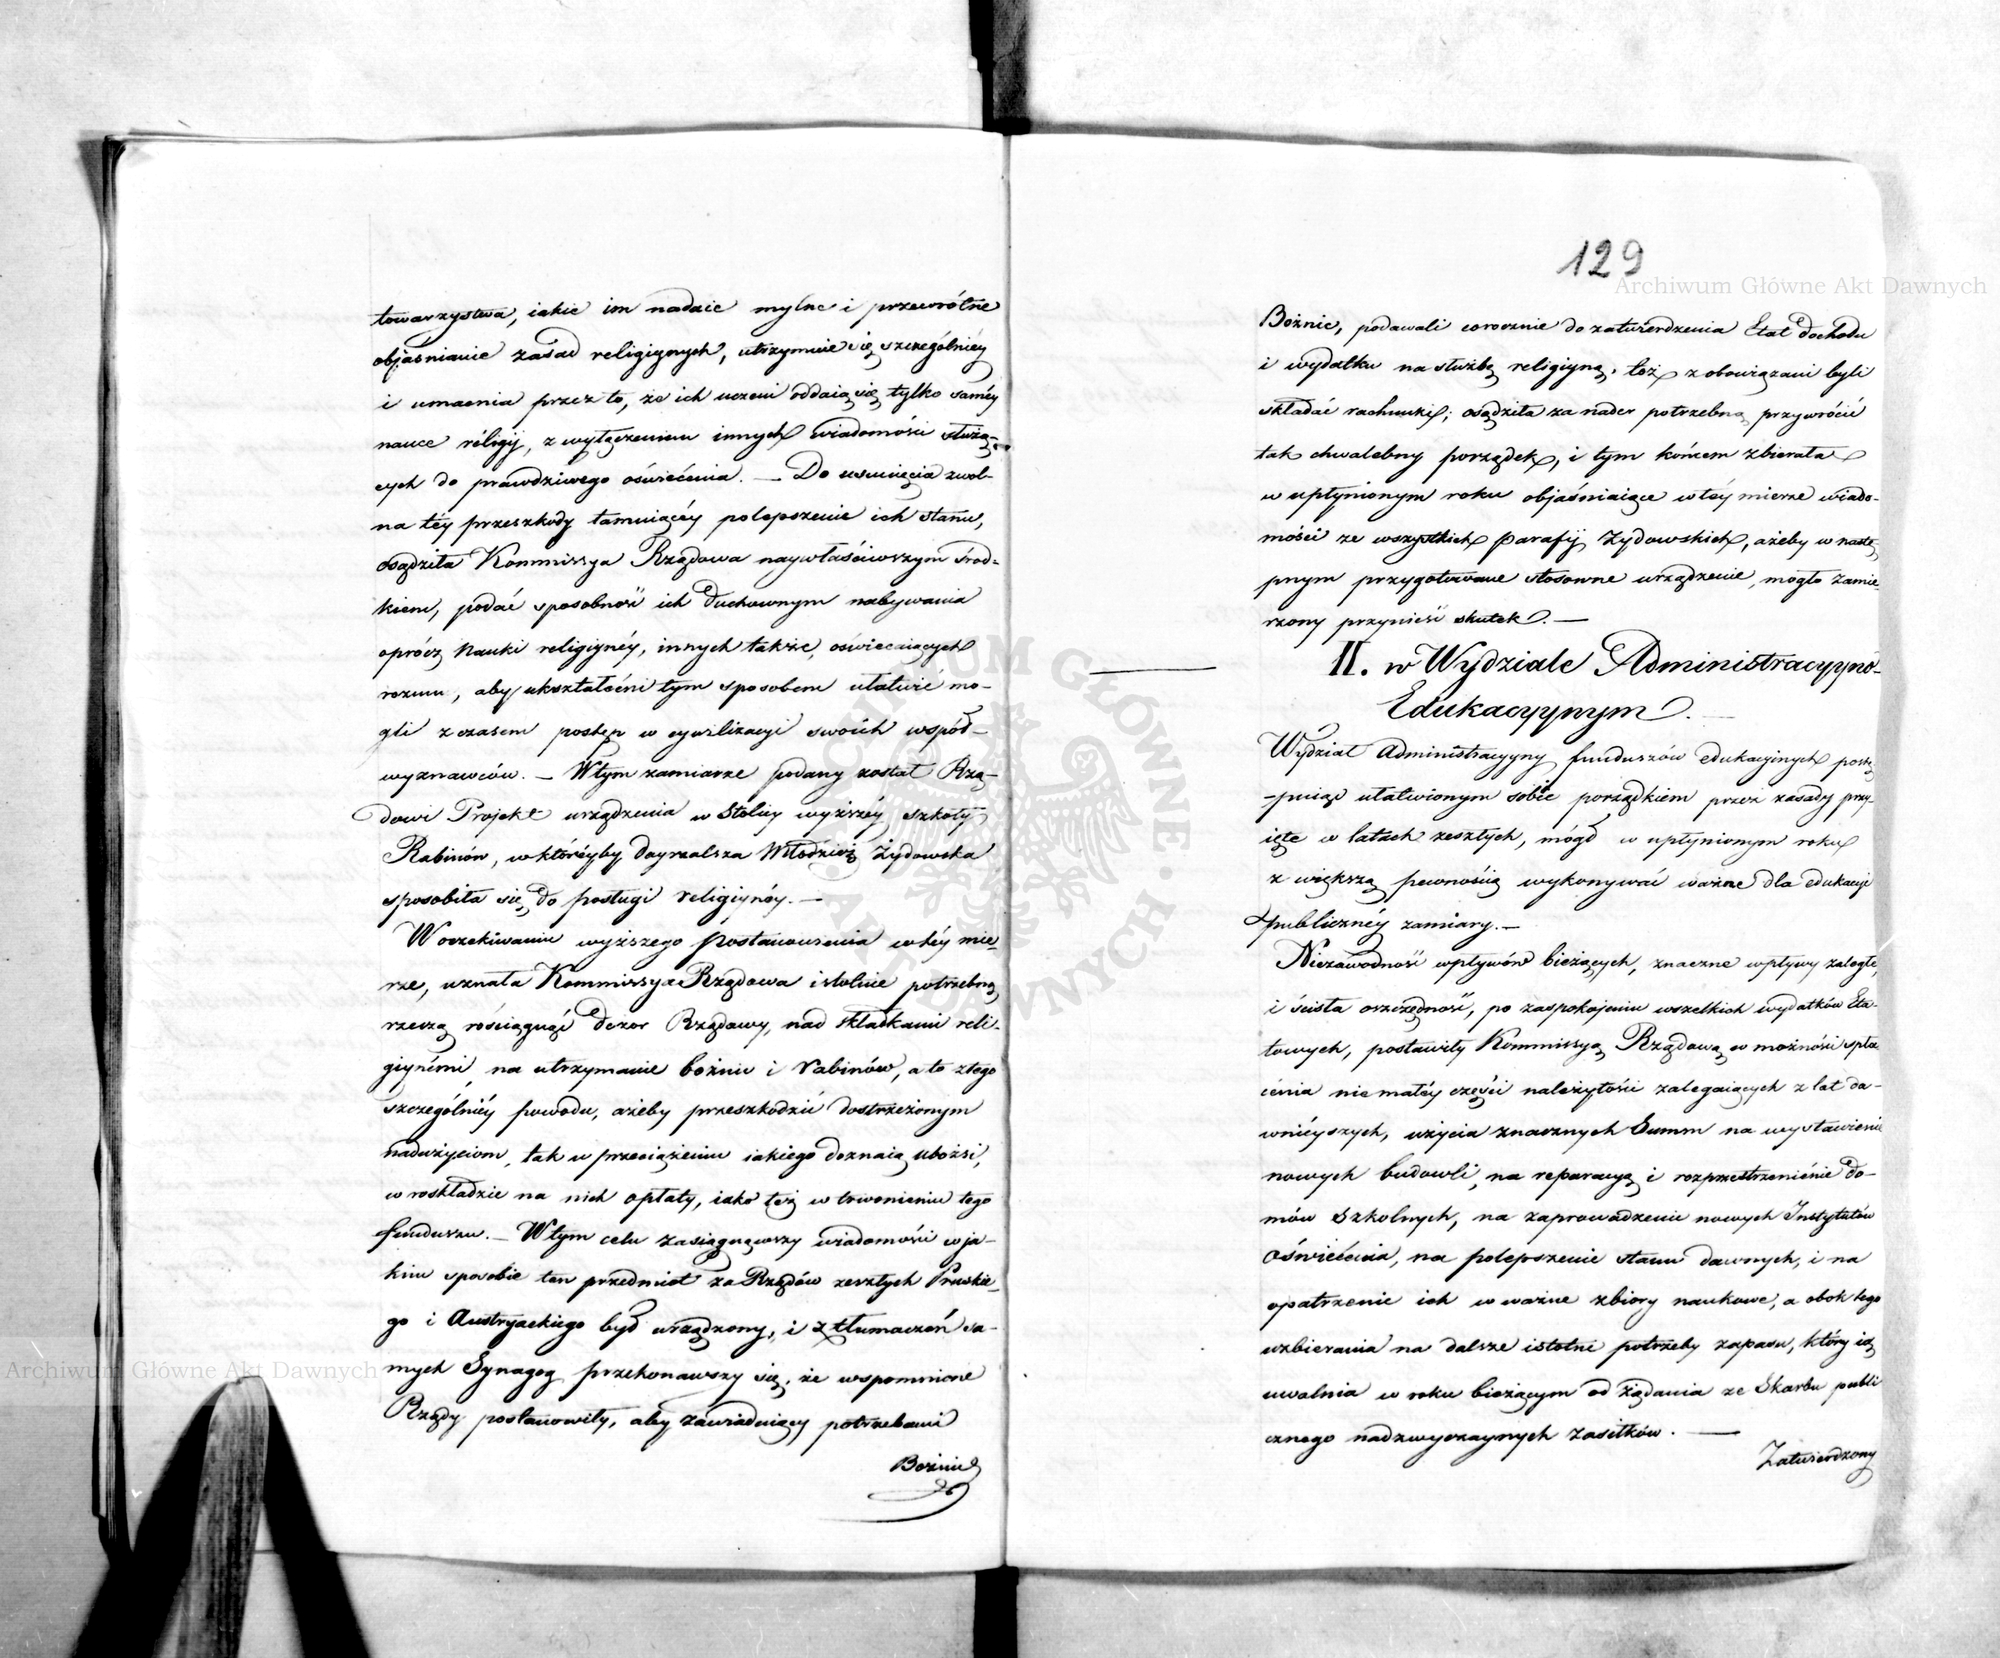 towarzystwa, iakie im nadaie mylne i przewrótne
objaśnianie zasad religiynych, utrzymuie się szczególniéy
i umacnia przez to, że ich uczeni oddaią się tylko saméy
nauce réligij, z wyłączeniem innych wiadomości służą-
cych do prawdziwego oświécénia. — Do usunięcia zwol-
na téy przeszkody tamuiącéy polepszenie ich stanu,
osądziła Kommissya Rządowa naywłaściwszym środ-
kiem, podać sposobność ich Duchownym nabywania
oprócz Nauki religiynéy, innych także, oświecaiących
rozum, aby ukształcéni tym sposobem ułatwić mo-
gli z czasem postęp w cywilizacyi swoich współ-
wyznawców. — W tym zamiarze podany został Rzą-
dowi Projekt urządzenia w Stolicy wyższéy szkoły
Rabinów, w któréyby doyrzalsza Młodzież Żydowska
sposobiła się do posługi religiynéy. —
W oczekiwaniu wyższego postanowienia w téy mie-
rze, uznała Kommissya Rządowa istotnie potrzebną
rzeczą rościągnąć dozor Rządowy, nad składkami reli-
giynémi, na utrzymanie bożnic i rabinów, a to z tego
szczególniéy powodu, ażeby przeszkodzić dostrzeżonym
nadużyciom, tak w przeciążeniu iakiego doznaią ubożsi,
w roskładzie na nich opłaty, iako też w trwonieniu tego
funduszu. — W tym celu zasiągnąwszy wiadomości w ja-
kim sposobie ten przedmiot za Rządów zeszłych Pruskie-
go i Austryackiego był urządzony, i z tłumaczeń sa-
mych Synagog przekonawszy się, że wspomnione
Rządy postanowiły, aby zawiaduiący potrzebami
Bożnic
129
Bożnic, podawali corocznie do zatwierdzenia Etat dochodu
i wydatku na służbę religiyną, też z obowiązani byli
składać rachunki; osądziła za nader potrzebną przywrócić
tak chwalebny porządek, i tym końcem zbierała
w upłynionym roku objaśniaiące w téy mierze wiado-
mości ze wszystkich parafij Żydowskich, ażeby w nastę-
pnym przygotowane stosowne urządzenie, mogło zamie-
rzony przynieść skutek. —
II. w Wydziale Administracyyno-
Edukacyynym. —
Wydział Administracyyny funduszów edukacyinych postę-
puiąc ułatwionym sobie porządkiem przez zasady przy-
ięte w latach zeszłych, mógł w upłynionym roku
z większą pewnością wykonywać ważne dla edukacyi
publicznéy zamiary. —
Niezawodność wpływów bieżących, znaczne wpływy zaległe,
i ścisła oszczędność, po zaspokojeniu wszelkich wydatków Eta-
towych, postawiły Kommissyą Rządową w możności spła-
cénia niemałéy części należytości zalegaiących z lat da-
wniéyszych, użycia znacznych Summ na wystawienie
nowych budowli, na reparacyą i rozprzestrzeniénie do-
mów Szkolnych, na zaprowadzenie nowych Instytutów
Oświécénia, na polepszenie stanu dawnych, i na
opatrzenie ich w ważne zbiory naukowe, a obok tego
uzbierania na dalsze istotne potrzeby zapasu, który ią
uwalnia w roku bieżącym od żądania ze Skarbu publi
cznego nadzwyczaynych zasiłków. —
Zatwierdzony
Archiwum Główne Akt Dawnych
Archiwum Główne Akt Dawnych
ARCHIWUM GŁÓWNE AKT DAWNYCH